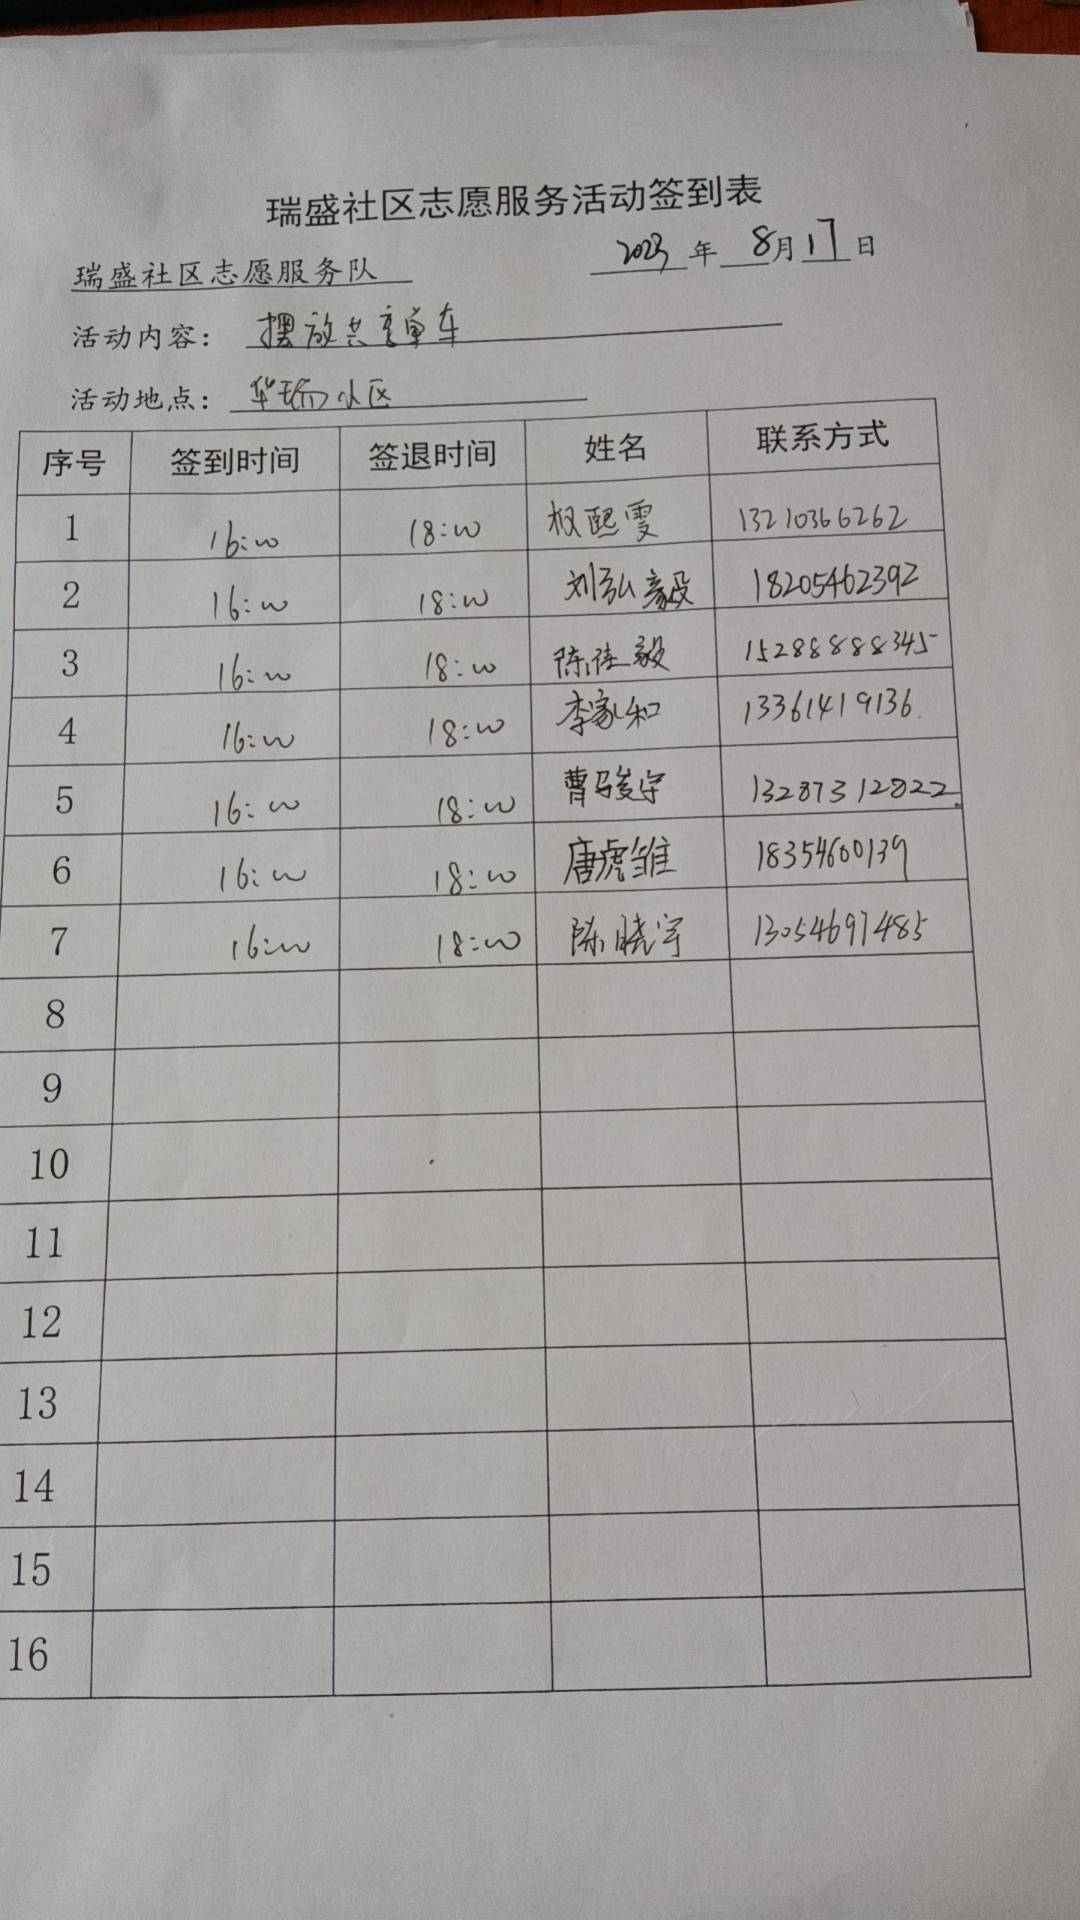 瑞盛社区志愿服务活动签到表
瑞盛社区志愿服务队 2023年 8月17日
活动内容： 摆放共享单车
活动地点： 华瑞小区
序号 签到时间 签退时间 姓名 联系方式
1 16:00 18:00 权熙雯 13210366262
2 16:00 18:00 刘弘毅 18205462392
3 16:00 18:00 陈佳毅 15288888345
4 16:00 18:00 李家和 13361419136
5 16:00 18:00 曹骏宇 13287312822
6 16:00 18:00 唐虎雏 18354600139
7 16:00 18:00 陈晓宇 13054697485
8
9
10
11
12
13
14
15
16